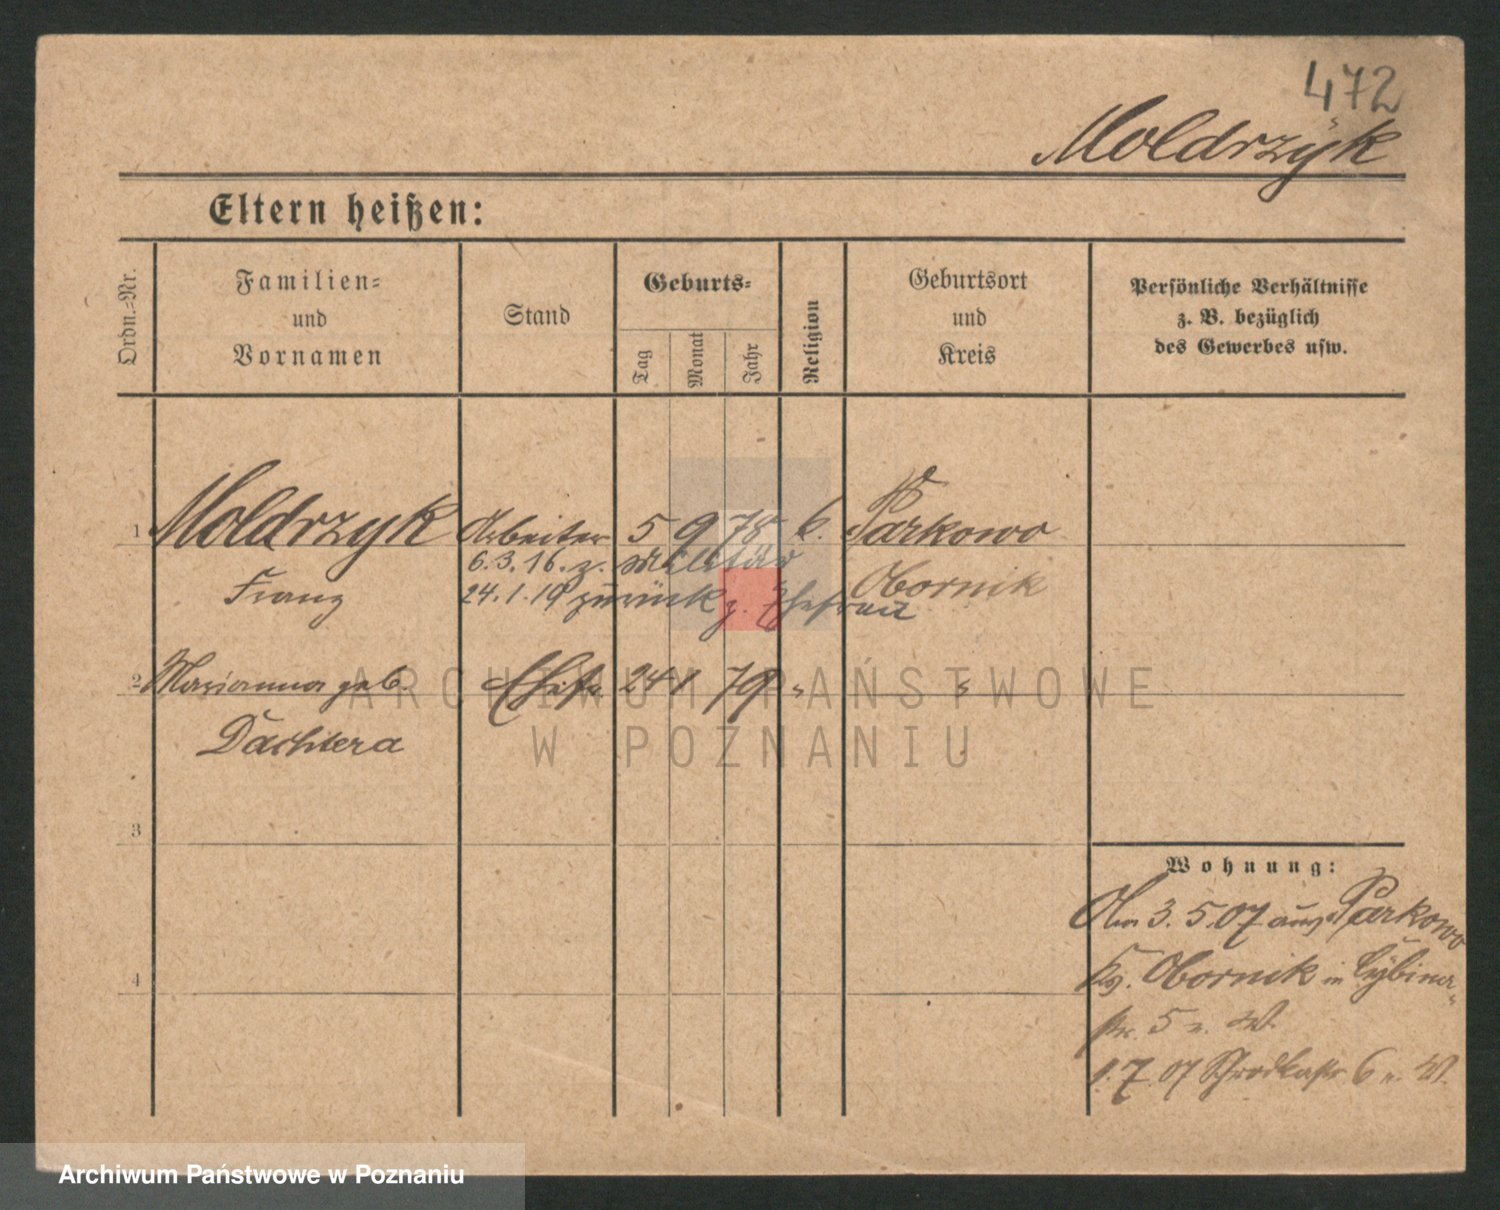 472
Moldrzyk
Eltern heißen:
Ordn.-Nr.
Familien-
und
Vornamen
Stand
Geburts-
Tag
Monat
Jahr
Religion
Geburtsort
und
Kreis
Persönliche Verhältnisse
z. B. bezüglich
des Gewerbes usw.
1 Moldrzyk Arbeiter 5 9 78 Parkowo
6.3.16. z. Militär
Franz 24.1.19 zurück z. Ehefrau Obornik
2 Marianna geb. Ehefr. 24 1 79 " "
Dachtera
ARCHIWUM PAŃSTWOWE
W POZNANIU
3
4
Wohnung:
Am 3.5.07 aus Parkowo
Kr. Obornik in Cybina-
str. 5 n. W.
1.7.07 Schrodkastr. 6 n. W.
Archiwum Państwowe w Poznaniu